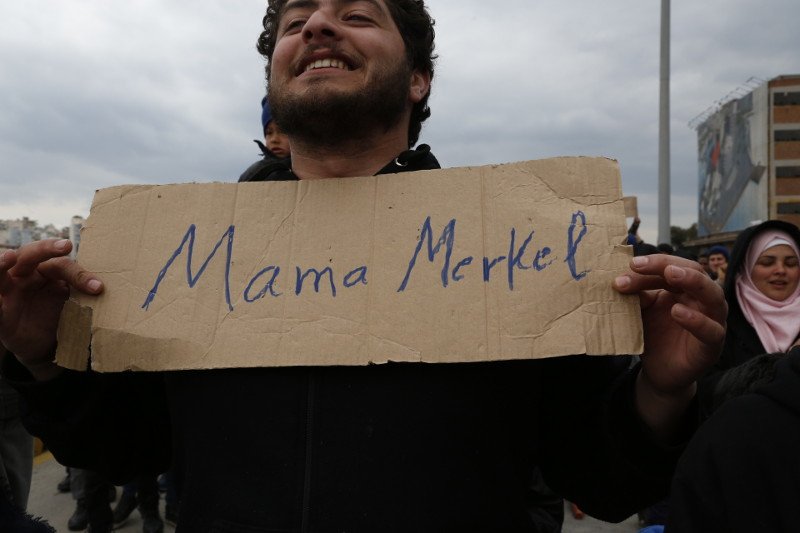 Mama Merkel